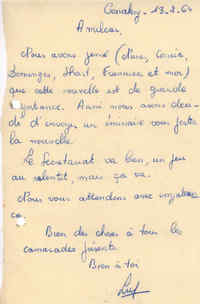 Conakry - 13.2.60
Amilcar,
Nous avons pensé (Nous,
Domingos, Francine et moi)
que cette nouvelle est de grande
importance. Aussi nous avons déci-
dé d'envoyer un émissaire vous porter
la nouvelle.
Le Secrétariat va bien, un peu
au ralenti, mais ça va.
Nous vous attendons avec
Bien des choses à tous les
camarades présents.
Bien à toi